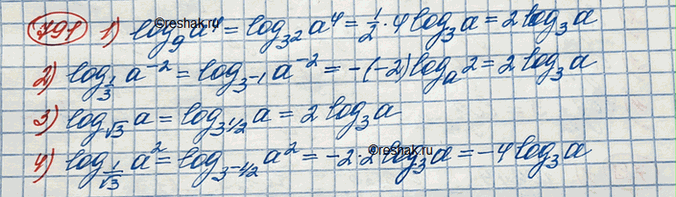 791 1) log₉a⁴ = log₃²a⁴ = 1/2 · 4 log₃a = 2 log₃a
2) log_{1/3} a⁻² = log_{3⁻¹} a⁻² = -(-2) logₐ2 = 2 log₃a
3) log_{√3} a = log_{3^{1/2}} a = 2 log₃a
4) log_{1/√3} a² = log_{3^{-1/2}} a² = -2 · 2 log₃a = -4 log₃a
©reshak.ru
©reshak.ru